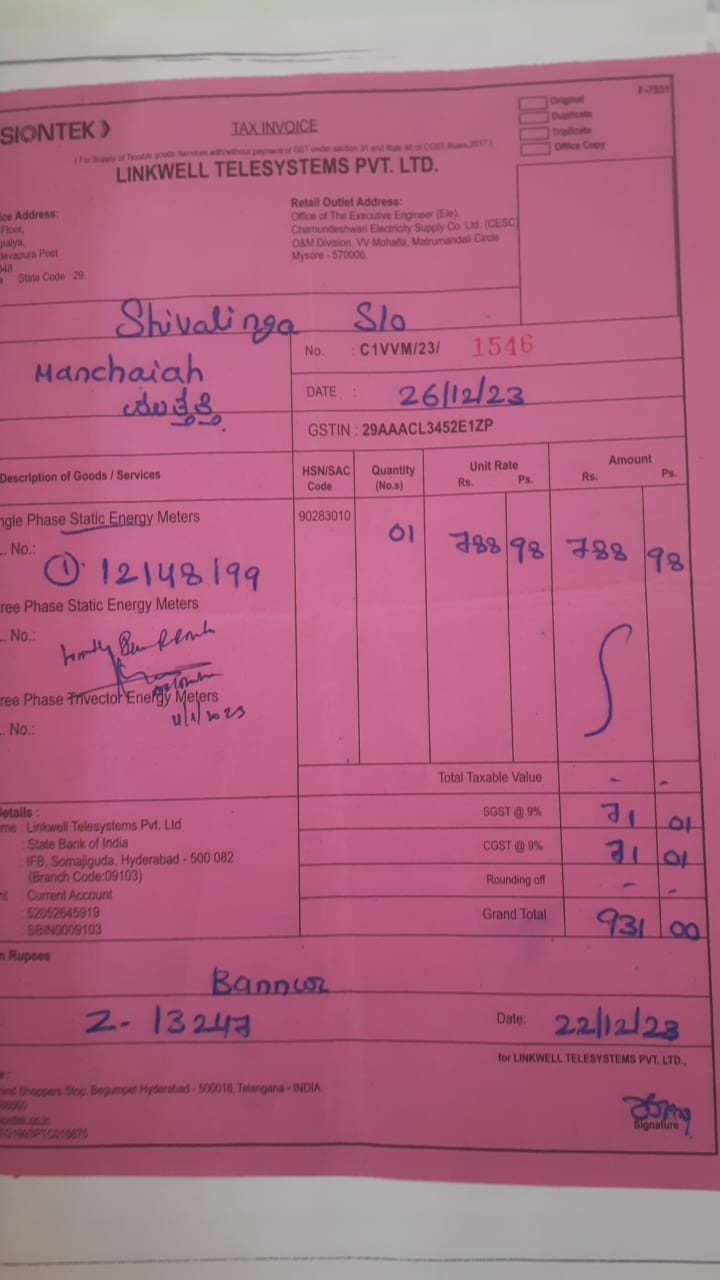 SIONTEK
TAX INVOICE
Original
Duplicate
Triplicate
Office Copy
F-7531
(For Supply of Taxable goods /services with/without payment of GST under section 31 and Rule 46 of CGST Rules, 2017)
LINKWELL TELESYSTEMS PVT. LTD.
ice Address:
Floor,
palya,
devapura Post
048
State Code : 29.
Retail Outlet Address:
Office of The Executive Engineer (Ele),
Chamundeshwari Electricity Supply Co. Ltd. (CESC)
O&M Division, VV Mohalla, Matrumandali Circle
Mysore - 570006.
Shivalinga S/o
Manchaiah
No. : C1VVM/23/ 1546
DATE : 26/12/23
GSTIN : 29AAACL3452E1ZP
Description of Goods / Services HSN/SAC Code Quantity (No.s) Unit Rate Rs. Ps. Amount Rs. Ps.
ngle Phase Static Energy Meters 90283010 01 788 98 788 98
. No.:
① 12148199
ree Phase Static Energy Meters
. No.:
ree Phase Trivector Energy Meters
. No.:
Total Taxable Value - -
SGST @ 9% 71 01
CGST @ 9% 71 01
Rounding off - -
Grand Total 931 00
etails :
me : Linkwell Telesystems Pvt. Ltd
: State Bank of India
: IFB, Somajiguda, Hyderabad - 500 082
(Branch Code:09103)
nt : Current Account
: 52052645919
: SBIN0009103
n Rupees
Bannur
2- 13247
Date: 22/12/23
for LINKWELL TELESYSTEMS PVT. LTD.,
ind Shoppers Stop, Begumpet Hyderabad - 500016. Telangana - INDIA.
Signature